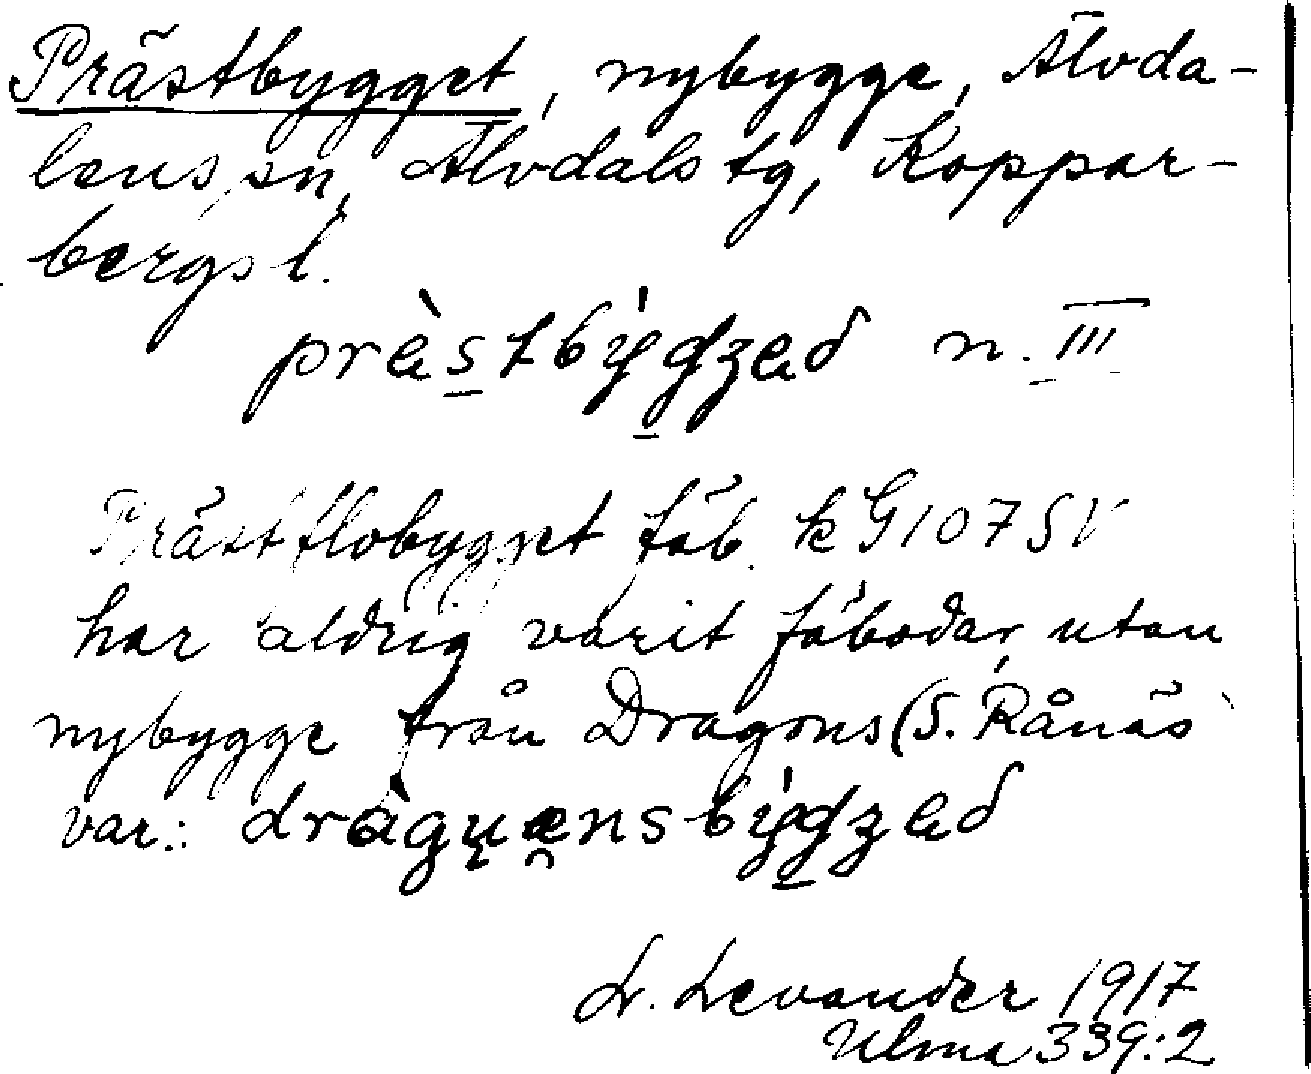 Prästbygget, nybygge, Älvda-
lens sn, Älvdals tg, Koppar-
bergs l.
prὲstby̍gʒed n. III
Prästflobygget fäb. k G107SV
har aldrig varit fäbodar, utan
nybygge från Dragons (S. Rånäs
var.: dràgu̯ænsby̍gʒed
L. Levander 1917
Ulma 339:2